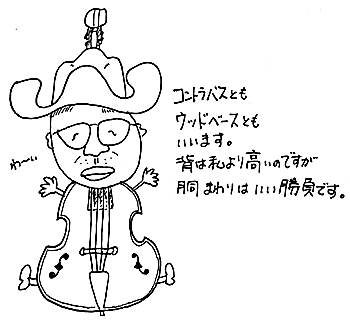 コントラバスとも
ウッドベースとも
いいます。
背は私より高いのですが
胴まわりはいい勝負です。
わ〜い